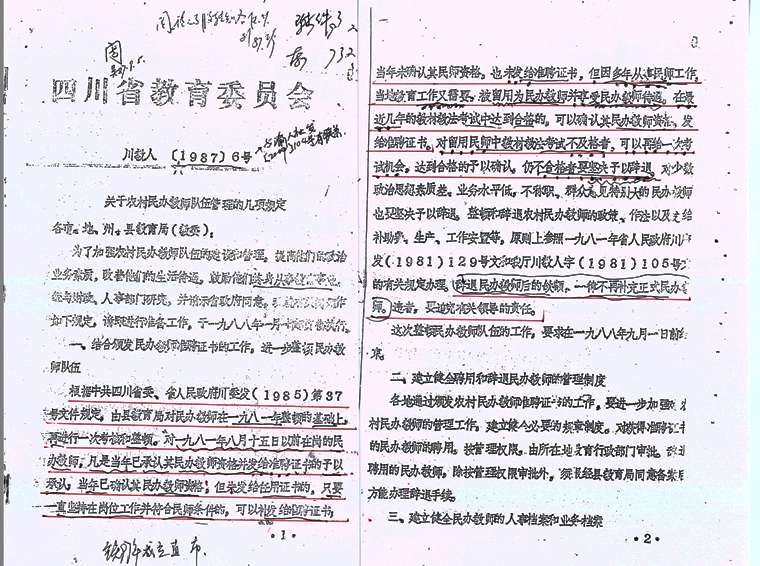 四川省教育委员会
川教人〔1987〕6号
关于农村民办教师队伍管理的几项规定
各市、地、州、县教育局（教委）：
为了加强农村民办教师队伍的建设和管理，提高他们的政治
业务素质，改善他们的生活待遇，鼓励他们终身从事教育事业，
经与财政、人事部门研究，并请示省政府同意，
如下规定，请即进行准备工作，于一九八八年一月
一、结合颁发民办教师准聘证书的工作，进一步整顿民办教
师队伍
根据中共四川省委、省人民政府川委发（1985）第37
号文件规定，由县教育局对民办教师在一九八一年整顿的基础上，
再进行一次考核和整顿。对一九八一年八月十五日以前在岗的民
办教师，凡是当年已承认其民办教师资格并发给准聘证书的予以
承认；当年已确认其民办教师资格，但未发给任用证书的，只要
一直坚持在岗位工作并符合民师条件的，可以补发给准聘证书；
·1·
当年未确认其民师资格，也未发给准聘证书，但因多年从事民师工作，
当地教育工作又需要，被留用为民办教师并享受民办教师待遇。在最
近几年的教材教法考试中达到合格的，可以确认其民师资格，发
给准聘证书。对留用民师中教材教法考试不及格者，可以再给一次考
试机会，达到合格的予以确认，仍不合格者要坚决予以辞退。对少数
政治思想素质差、业务水平低，不称职、群众意见特别大的民办教师
也要坚决予以辞退。整顿和辞退农村民办教师的政策、作法以及发给
补助费、生产、工作安置等，原则上参照一九八一年省人民政府川
发（1981）129号文和我厅川教人字（1981）105号文
的有关规定办理。辞退民办教师后的缺额，一律不再补充正式民办教
师。违者，要追究有关领导的责任。
这次整顿民办教师队伍的工作，要求在一九八八年九月一日前结
束。
二、建立健全聘用和辞退民办教师的管理制度
各地通过颁发农村民办教师准聘证书的工作，要进一步加强对农
村民办教师的管理工作，建立健全必要的规章制度。对获得准聘证书
的民办教师的聘用，按管理权限，由所在地教育行政部门审批。辞退
聘用的民办教师，除按管理权限审批外，须报经县教育局同意备案后
方能办理辞退手续。
三、建立健全民办教师的人事档案和业务档案
·2·